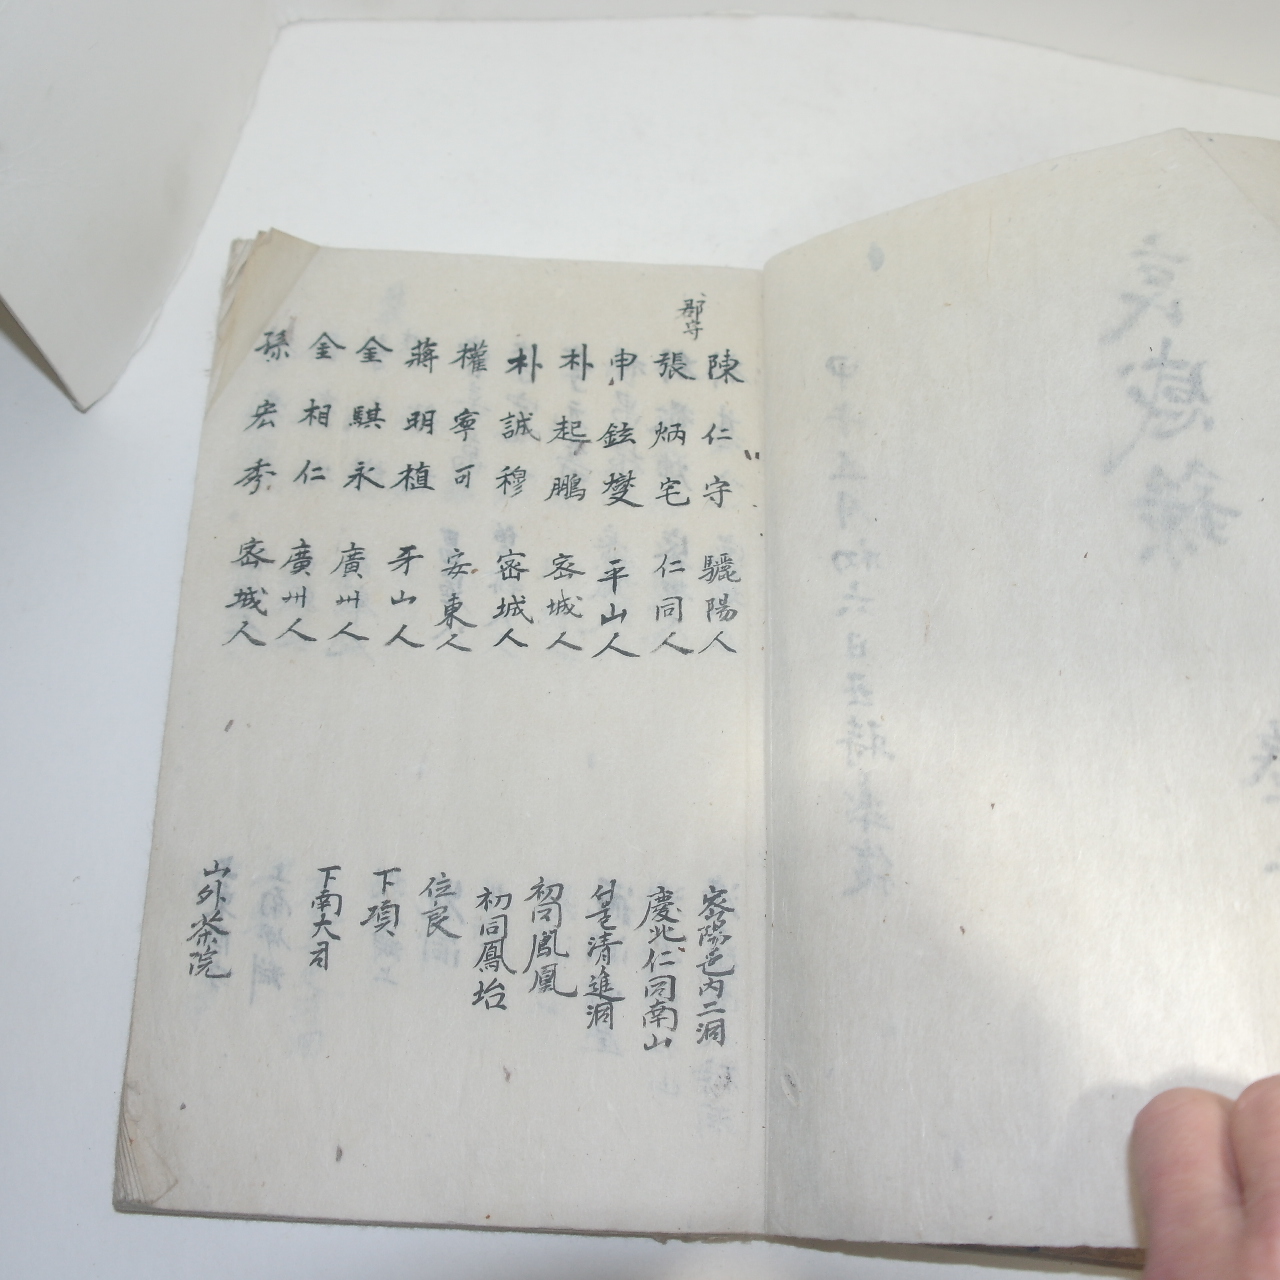 陳仁守 驪陽人 密陽邑內二洞
郡守
張炳宅 仁同人 慶北仁同南山
申鉉燮 平山人 清進洞
朴起鵬 密城人 初同鳳凰
朴誠穆 密城人 初同鳳坮
權寧可 安東人 位良
蔣明植 牙山人 下項
金騏永 廣州人 下南大司
金相仁 廣州人
孫宏秀 密城人 山外茶院
哀感錄